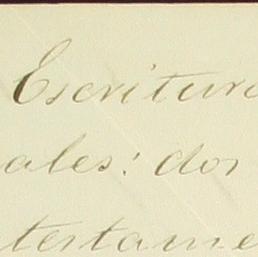 Escritura
ales: dos
testame